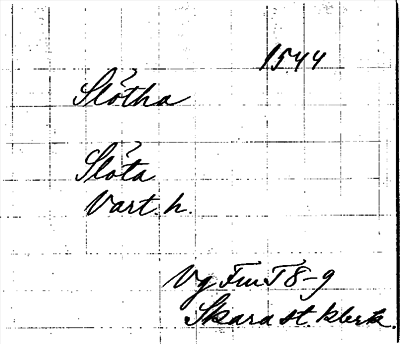 1544
Slötha
Slöta
Vart. h.
Vg Fm T 8-9
Skara st. klerk.